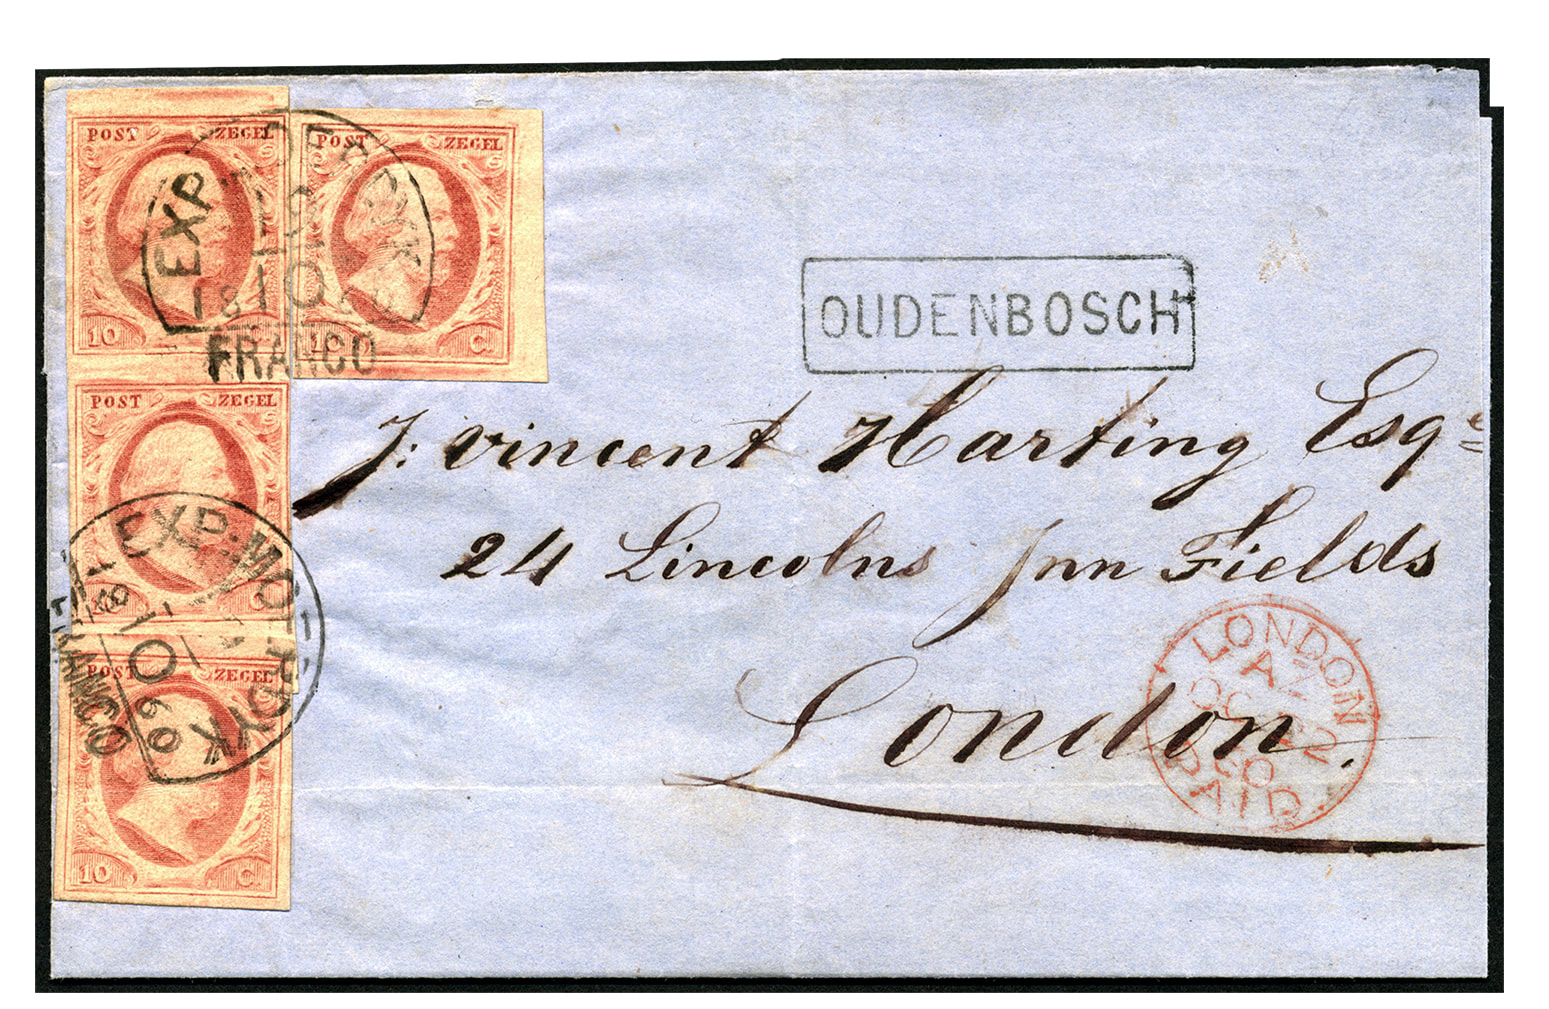 POST ZEGEL
10
POST ZEGEL
10 C.
EXP
18
10
FRANCO
POST ZEGEL
EXP. MOERDYK
FRANCO
POST ZEGEL
10 C.
OUDENBOSCH
J: Vincent Harting Esqe
24 Lincolns Inn Fields
London.
LONDON
AZ
OC 12
60
PAID